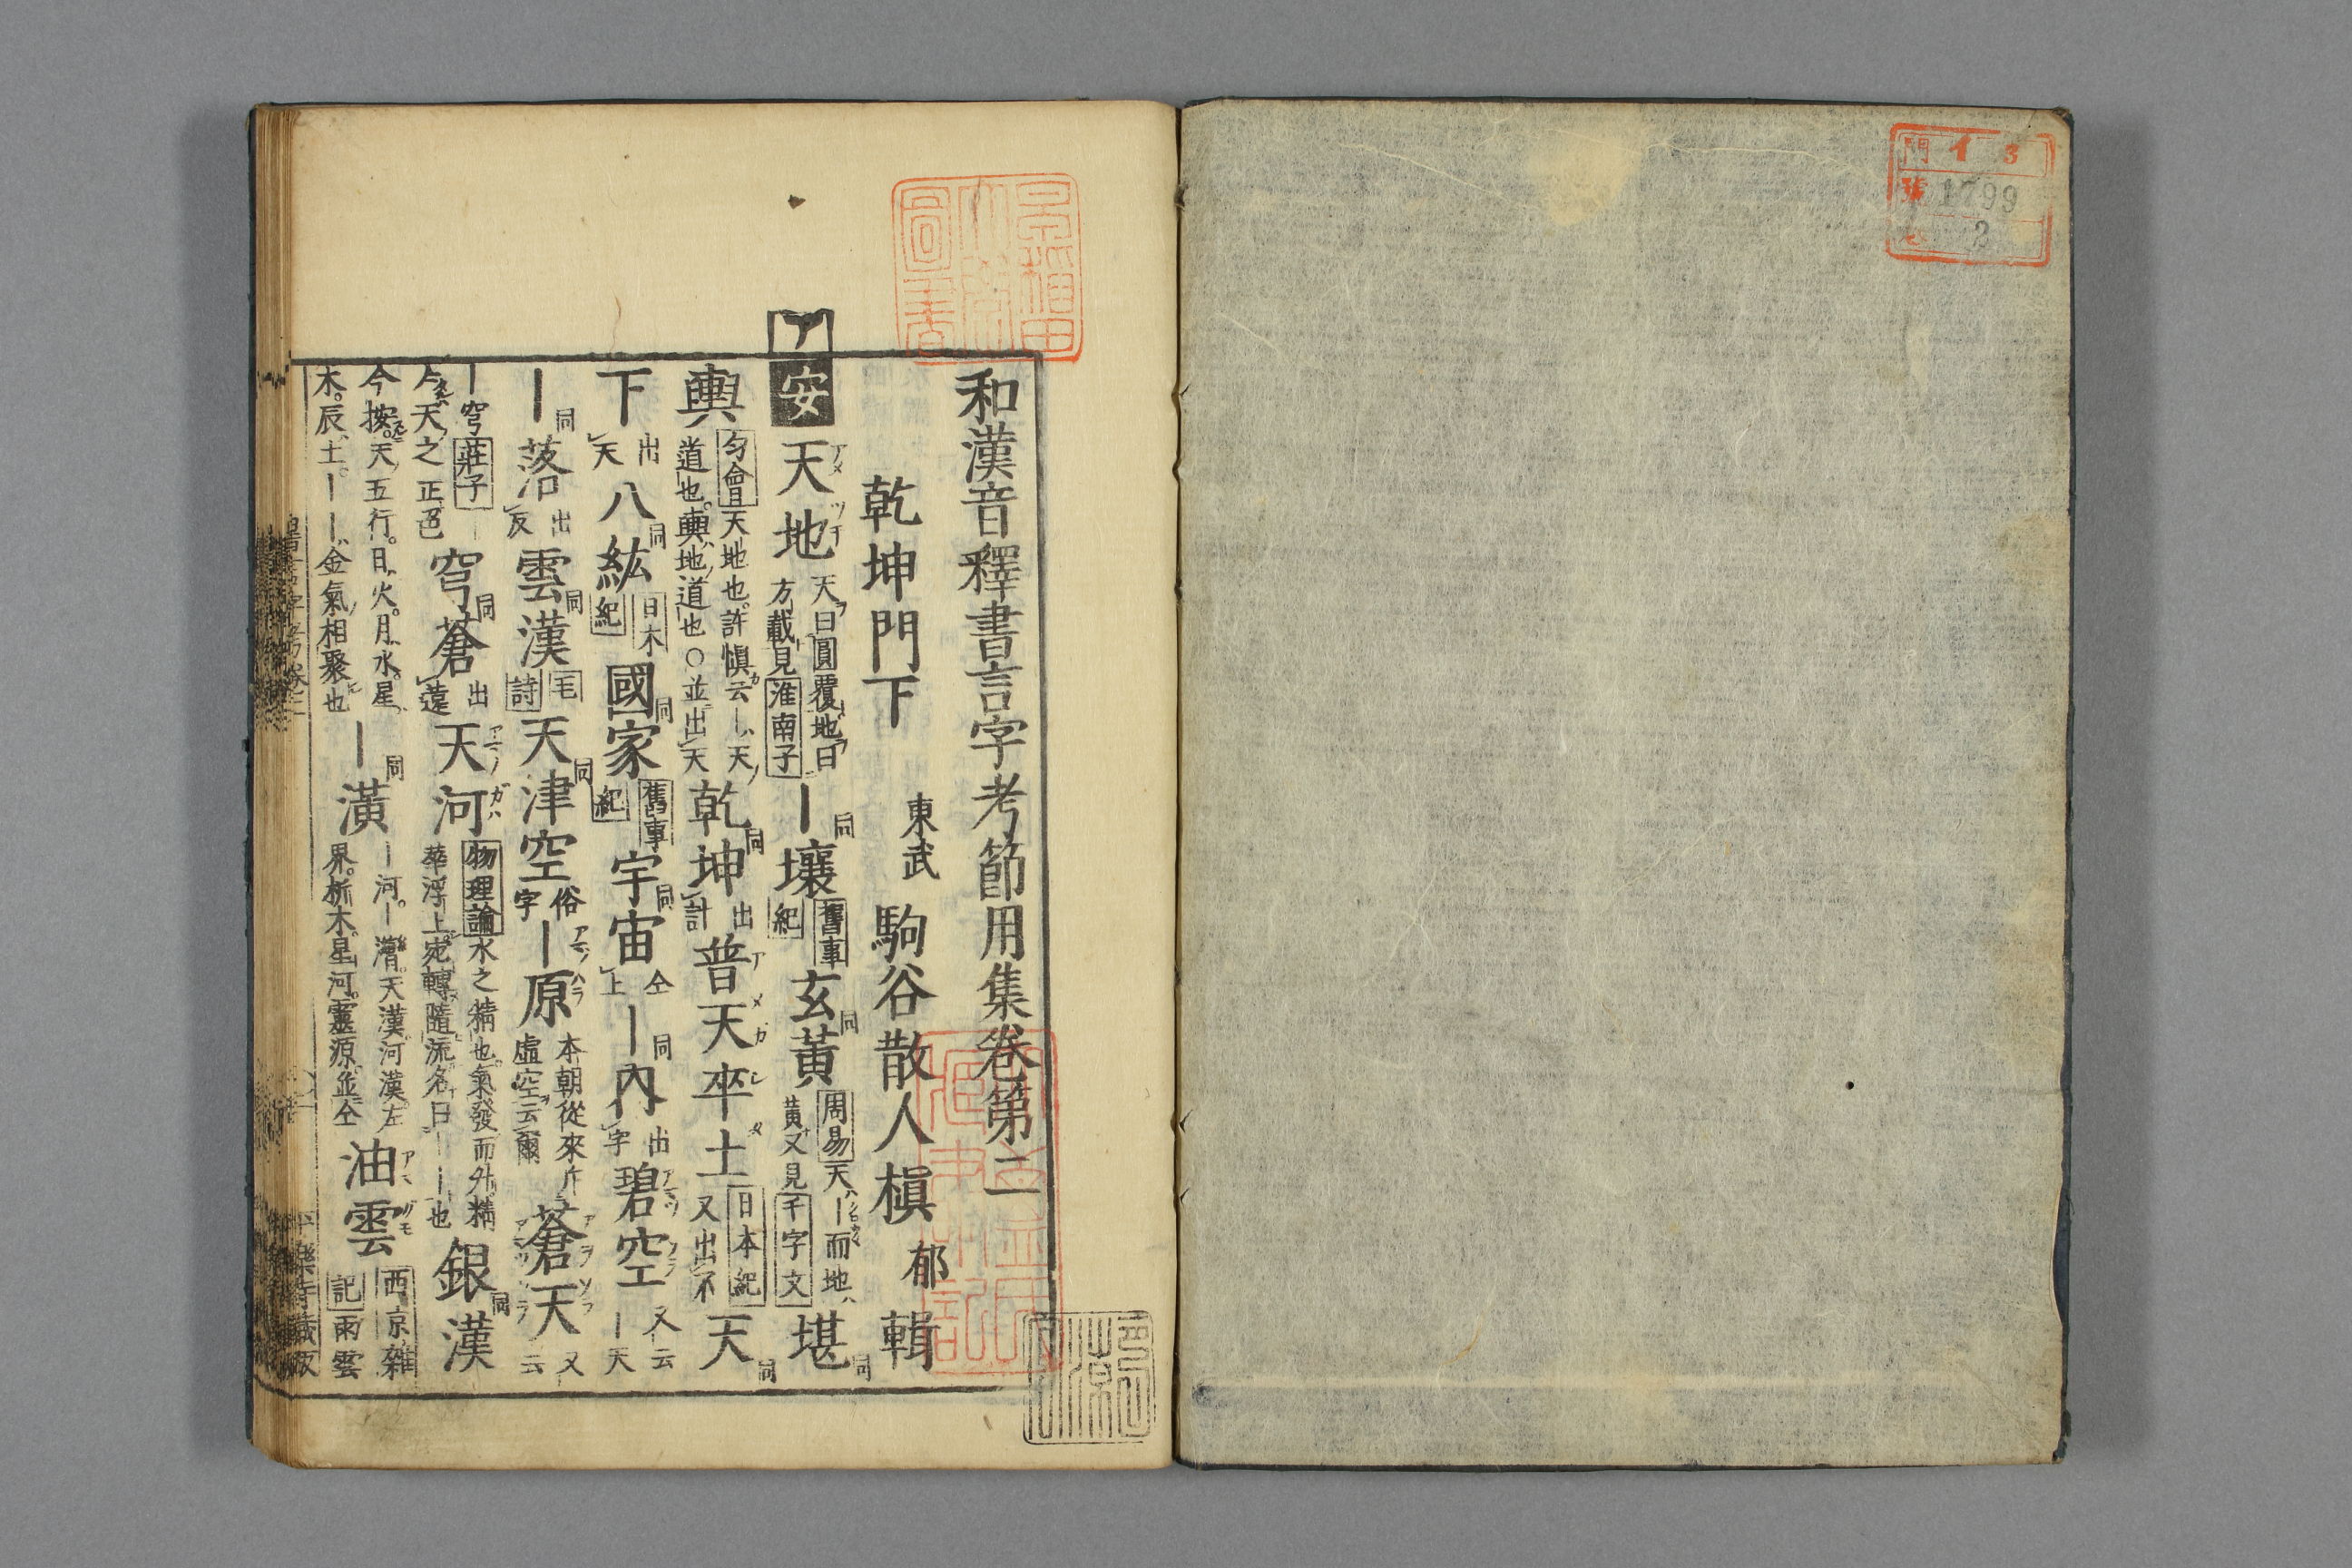 門 イ 3
號 1799
卷 2
和漢音釋書言字考節用集卷第二
乾坤門下
東武 駒谷散人槇郁輯
ア安 天地 アメツチ 天曰圓覆地曰方載見淮南子 ｜壤 同 舊事紀 玄黃 同 周易天ハ｜而地ハ黃又見千字文 堪輿 同
匀會天地也許愼云｜ハ天ノ道也輿ハ地ノ道也○並出天 乾坤 同 出計 普天卒土 アメガシタ 日本紀又出不 天下 同
出天 八紘 同 日本紀 國家 同 舊事紀 宇宙 同 仝上 ｜內 同 出字 碧空 アヲソラ 又云｜天
｜落 同 出反 雲漢 同 毛詩 天津空 同 俗字 ｜原 アマノハラ 本朝從來斥虛空云爾 蒼天 アヲソラ 又云
｜穹莊子天之正色 穹蒼 同 出遠 天河 アマノガハ 物理論水之精也氣發而升精華浮上宛轉隨流名曰｜｜｜也 銀漢 同
今按天五行日火月水星木辰土｜｜金氣相聚也 ｜潢 同 ｜河｜漕天漢河漢左界析木星河靈源並仝 油雲 アマグモ 西京雜記雨雲
平樂寺藏版